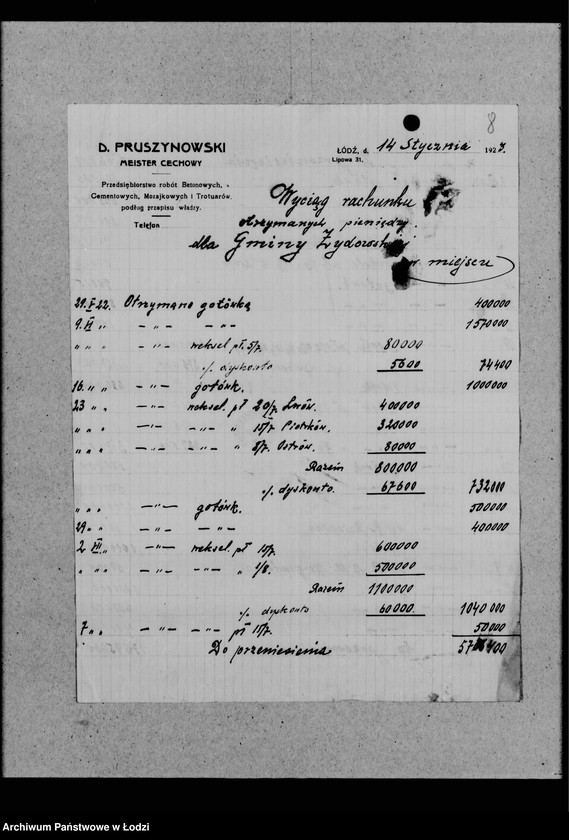 8
D. PRUSZYNOWSKI
MEISTER CECHOWY
Przedsiębiorstwo robót Betonowych,
Cementowych, Mozajkowych i Trotuarów,
podług przepisu władzy.
Telefon
ŁÓDŹ, d. 14 Stycznia 192
Lipowa 31,
Wyciąg rachunku
otrzymanych pieniędzy
dla Gminy Żydowskiej
w miejscu
29. V 22. Otrzymano gotówką 400000
9. VI „ — „ — — „ — 1570000
„ „ „ — „ — weksel pł. 5/7. 80000
% dyskonto 5600 74400
16. „ „ — „ — gotówk. 1000000
23 „ „ — „ — weksel. pł 20/7 Lwów. 400000
„ „ „ — „ — — „ — „ 15/7 Piotrków. 320000
„ „ „ — „ — — „ — „ 5/7. Ostrów. 80000
Razem 800,000
% dyskonto. 67600 732000
„ „ „ — „ — gotówk. 500000
29. „ — „ — — „ — 400000
2 VII. „ — „ — weksel. pł 15/7. 600000
„ „ „ — „ — — „ — „ 1/8. 500000
Razem 1100000
% dyskonto 60000 1040000
7 „ „ — „ — — „ — pł 15/7. 50000
Do przeniesienia
Archiwum Państwowe w Łodzi